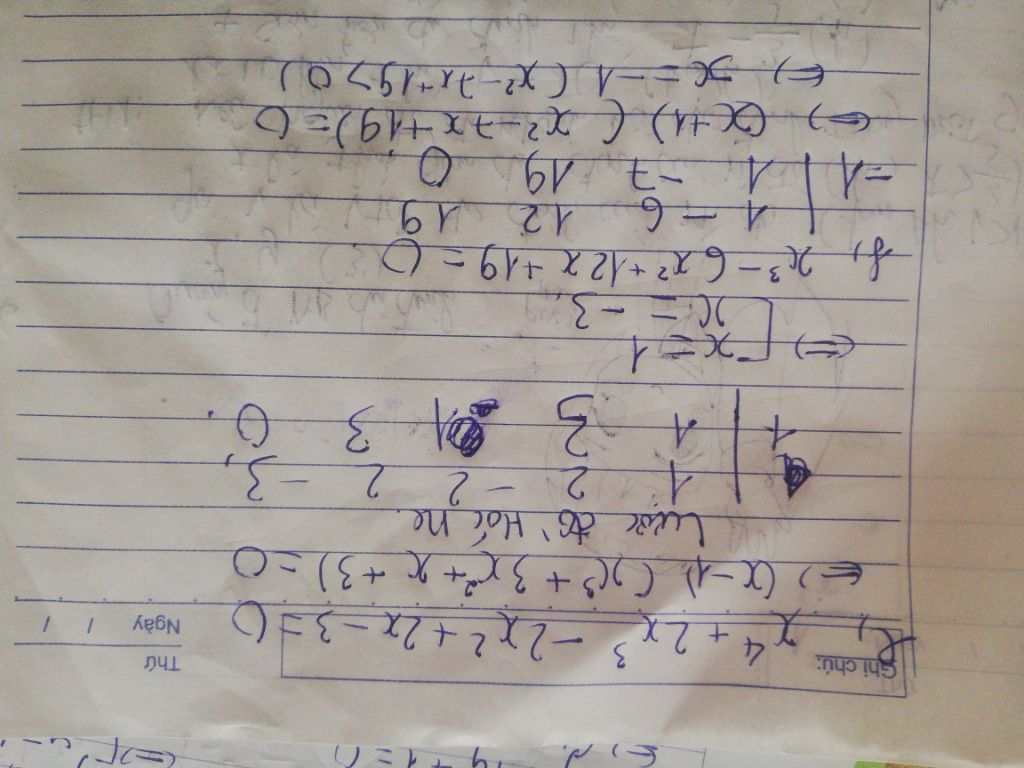 Ghi chú:
Thứ
Ngày / /
e, x⁴ + 2x³ - 2x² + 2x - 3 = 0
<=> (x-1) (x³ + 3x² + x + 3) = 0
Lược đồ Hoóc ne.
1 2 -2 2 -3,
1 | 1 3 1 3 0.
<=> [ x = 1
x = -3.
f, x³ - 6x² + 12x + 19 = 0
1 -6 12 19
-1 | 1 -7 19 0
<=> (x+1) (x² - 7x + 19) = 0
<=> x = -1 (x² - 7x + 19 > 0)